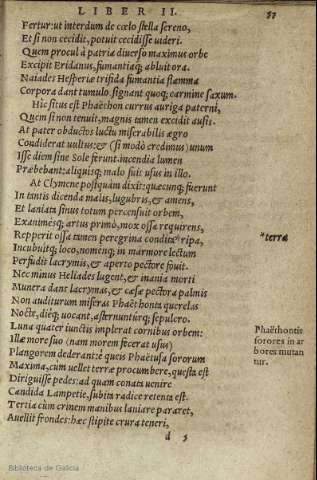 LIBER II.
Fertur: ut interdum de cœlo stella sereno,
Et si non cecidit, potuit cecidisse uideri.
Quem procul à patria diuerso maximus orbe
Excipit Eridanus, fumantiaq; abluit ora.
Naiades Hesperiæ trifida fumantia flamma
Corpora dant tumulo, signant quoq; carmine saxum.
Hic situs est Phaëthon currus auriga paterni,
Quem si non tenuit, magnis tamen excidit ausis.
At pater obductos luctu miserabilis ægro
Condiderat uultus: & (si modò credimus) unum
Isse diem sine Sole ferunt. incendia lumen
Præbebant: aliquisq; malo fuit usus in illo.
At Clymene postquàm dixit: quæcunq; fuerunt
In tantis dicenda malis, lugubris, & amens,
Et laniata sinus totum percensuit orbem,
Exanimesq; artus primò, mox ossa requirens,
Repperit ossa tamen peregrina condita *ripa,
Incubuitq; loco, nomenq; in marmore lectum
Perfudit lacrymis, & aperto pectore fouit.
Nec minus Heliades lugent, & inania morti
Munera dant lacrymas, & cæsæ pectora palmis
Non auditurum miseras Phaëthonta querelas
Nocte, dieq; uocant, asternunturq; sepulcro.
Luna quater iunctis implerat cornibus orbem:
Illæ more suo (nam morem fecerat usus)
Plangorem dederant: è quis Phaëtusa sororum
Maxima, cum uellet terræ procumbere, questa est
Diriguisse pedes: ad quam conata uenire
Candida Lampetie, subita radice retenta est.
Tertia cùm crinem manibus laniare pararet,
Auellit frondes: hæc stipite crura teneri,
d 5
*terra
Phaëthontis
sorores in ar
bores mutan
tur.
Biblioteca de Galicia